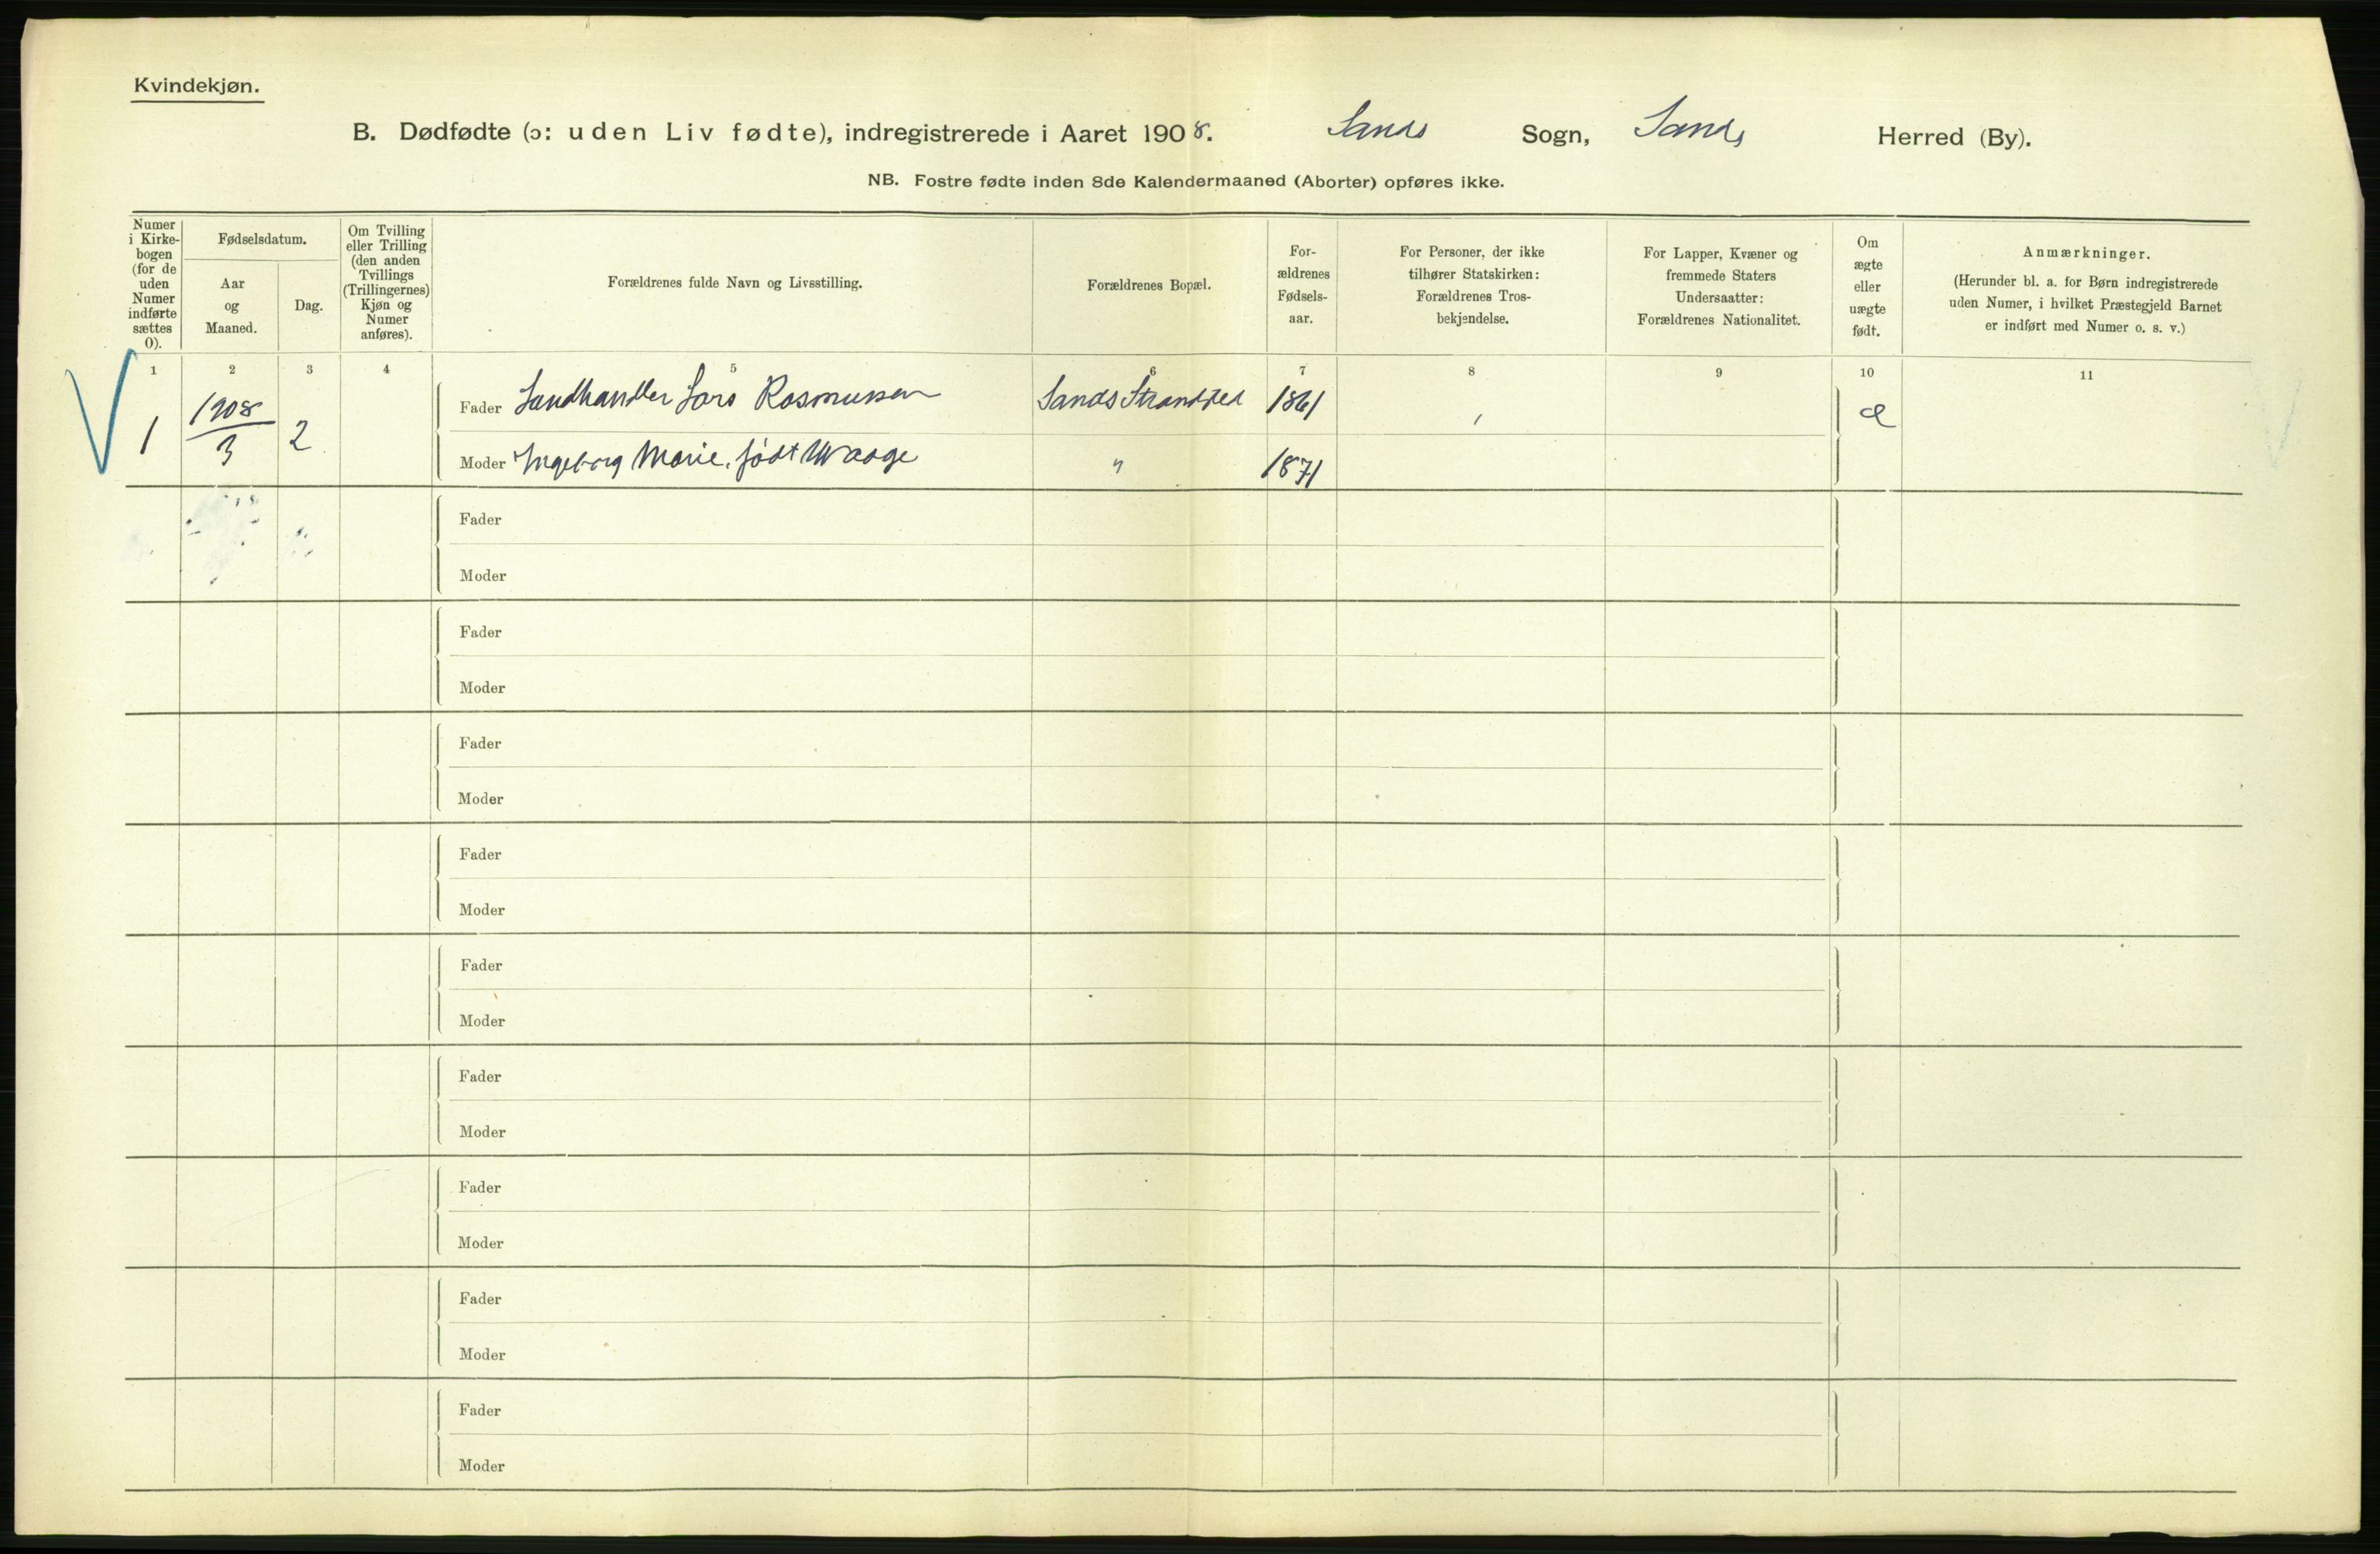 Kvindekjøn.
B. Dødfødte (ɔ: uden Liv fødte), indregistrerede i Aaret 1908. Sands Sogn, Sands Herred (By).
NB. Fostre fødte inden 8de Kalendermaaned (Aborter) opføres ikke.
Numer
i Kirke-
bogen
(for de
uden
Numer
indførte
sættes
0).
Fødselsdatum.
Aar
og
Maaned.
Dag.
Om Tvilling
eller Trilling
(den anden
Tvillings
(Trillingernes)
Kjøn og
Numer
anføres).
Forældrenes fulde Navn og Livsstilling.
Forældrenes Bopæl.
For-
ældrenes
Fødsels-
aar.
For Personer, der ikke
tilhører Statskirken:
Forældrenes Tros-
bekjendelse.
For Lapper, Kvæner og
fremmede Staters
Undersaatter:
Forældrenes Nationalitet.
Om
ægte
eller
uægte
født.
Anmærkninger.
(Herunder bl. a. for Børn indregistrerede
uden Numer, i hvilket Præstegjeld Barnet
er indført med Numer o. s. v.)
1 2 3 4 5 6 7 8 9 10 11
1 1908/3 2
Fader Landhandler Lars Rasmussen Sands Strandsted 1861 æ
Moder Ingeborg Marie, født Waage " 1871
Fader
Moder
Fader
Moder
Fader
Moder
Fader
Moder
Fader
Moder
Fader
Moder
Fader
Moder
Fader
Moder
Fader
Moder